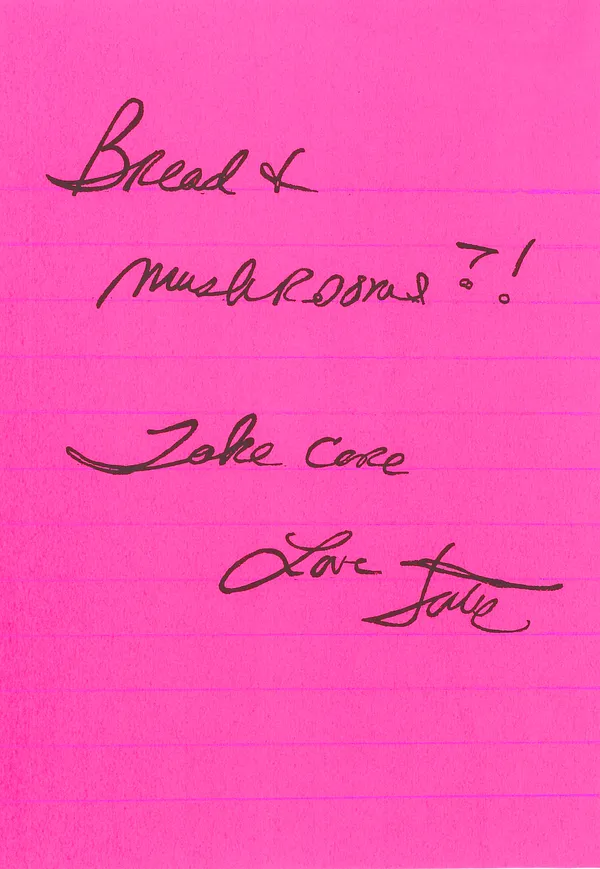 Bread &
mushrooms ?!
Take care
Love